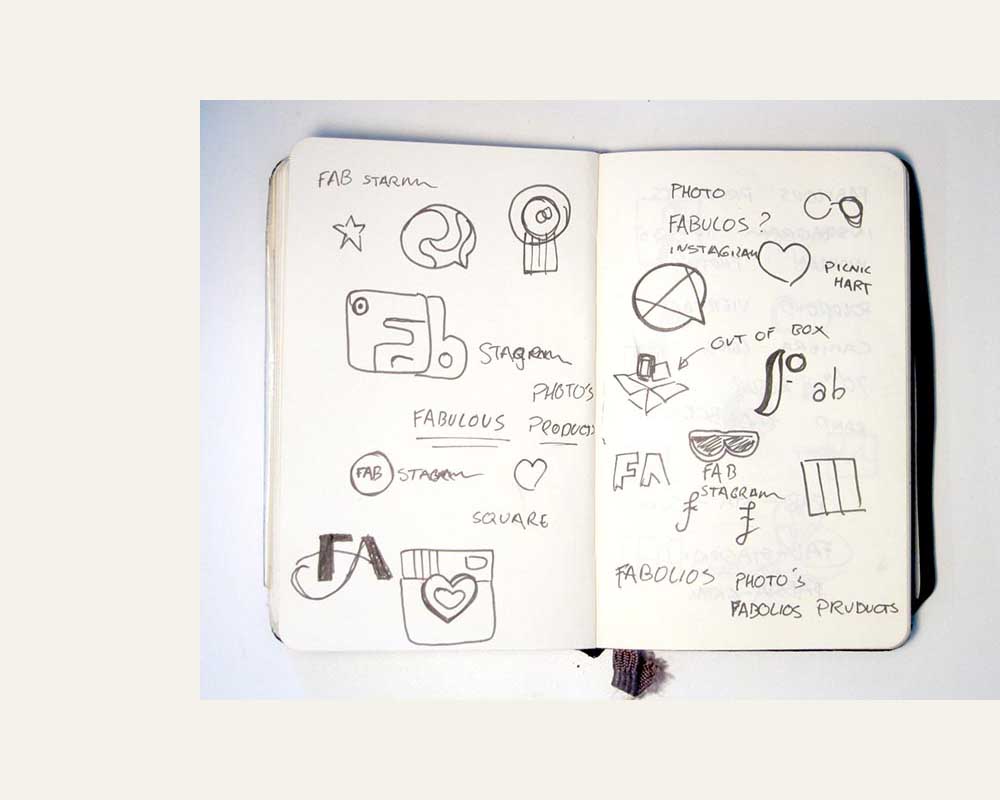 FAB STAGRAM
Fab STAGRAM
PHOTO'S
FABULOUS PRODUCTS
FAB STAGRAM
SQUARE
FA
PHOTO
FABULOS?
INSTAGRAM
PICNIC
HART
OUT OF BOX
ab
FA
FAB
STAGRAM
f f
FABOLIOS PHOTO'S
FABOLIOS PRUDUCTS